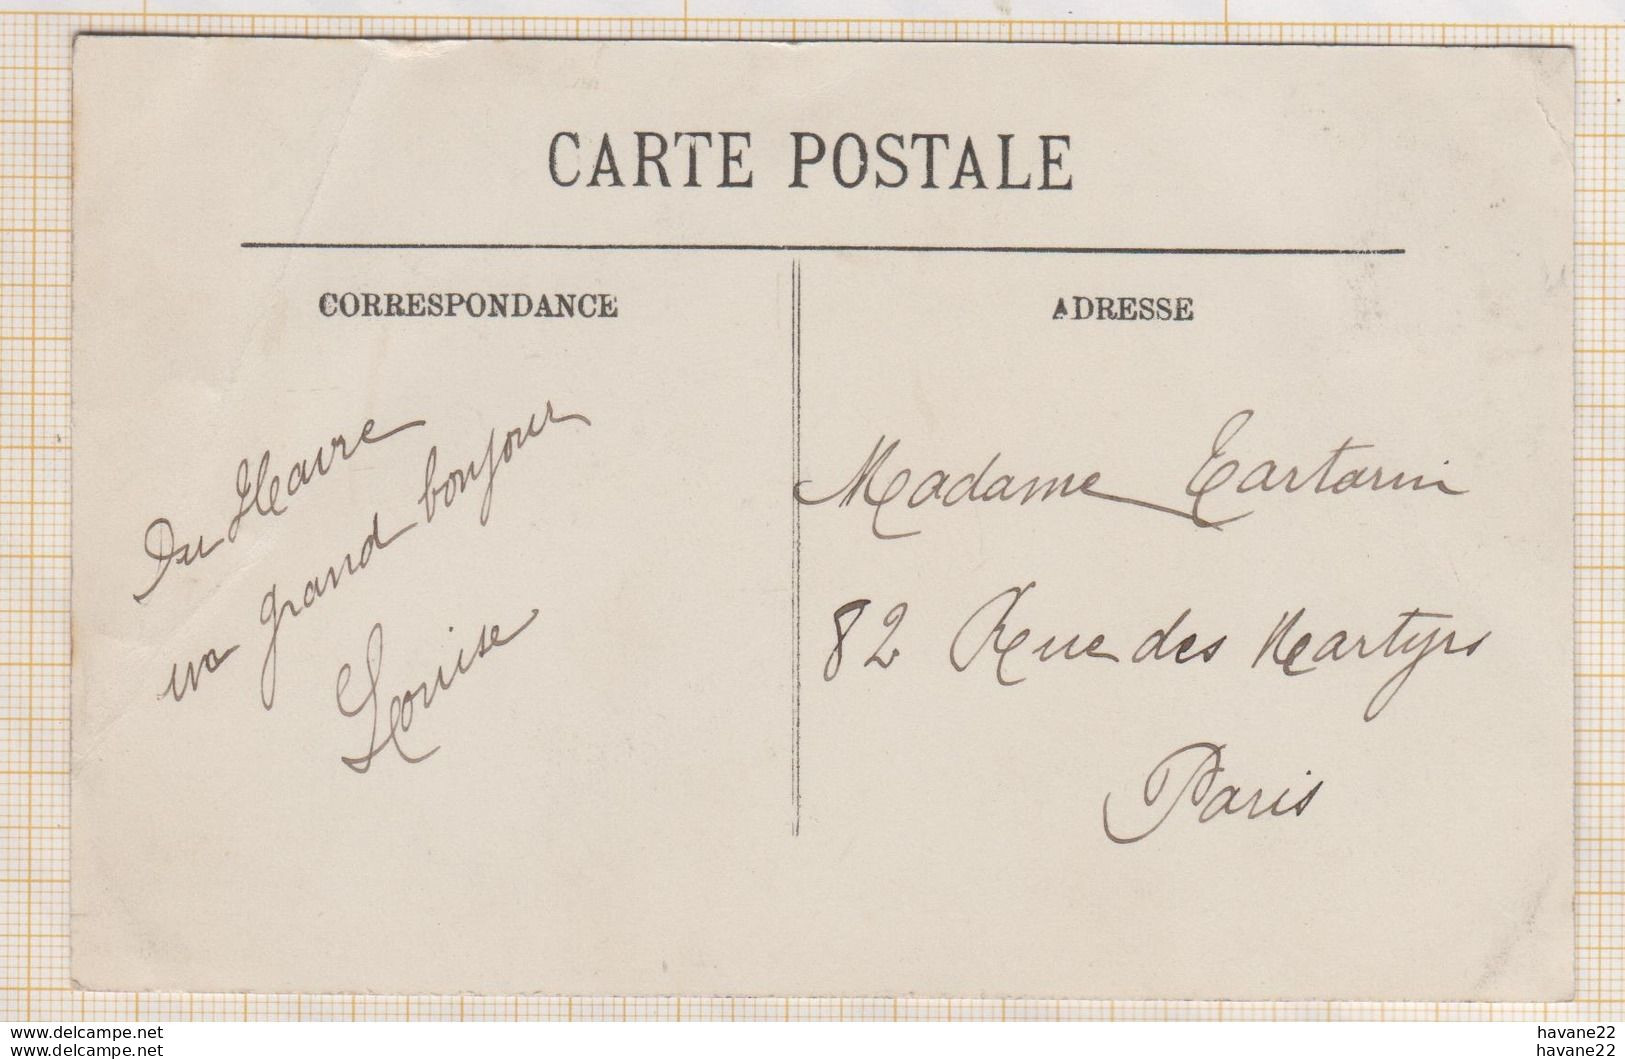 CARTE POSTALE
CORRESPONDANCE
ADRESSE
Du Havre
un grand bonjour
Louise
Madame Tartarin
82 Rue des Martyrs
Paris
www.delcampe.net
www.delcampe.net
havane22
havane22